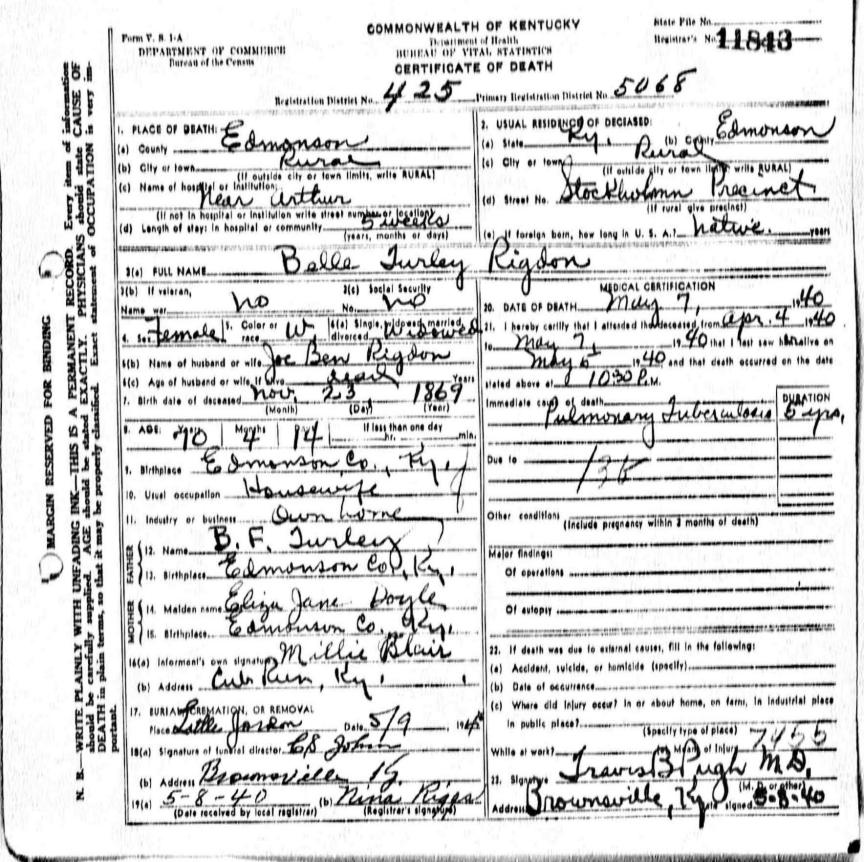 Form V. S. 1-A
DEPARTMENT OF COMMERCE
Bureau of the Census
COMMONWEALTH OF KENTUCKY
Department of Health
BUREAU OF VITAL STATISTICS
CERTIFICATE OF DEATH
State File No.
Registrar's No. 11843
Registration District No. 425 Primary Registration District No. 5068
MARGIN RESERVED FOR BINDING
N. B.—WRITE PLAINLY WITH UNFADING INK—THIS IS A PERMANENT RECORD. Every item of information
should be carefully supplied. AGE should be stated EXACTLY. PHYSICIANS should state CAUSE OF
DEATH in plain terms, so that it may be properly classified. Exact statement of OCCUPATION is very im-
portant.
1. PLACE OF DEATH:
(a) County Edmonson
(b) City or town Rural
(If outside city or town limits, write RURAL)
(c) Name of hospital or institution:
Near Arthur
(If not in hospital or institution write street number or location)
(d) Length of stay: In hospital or community 5 weeks
(years, months or days)
2. USUAL RESIDENCE OF DECEASED:
(a) State Ky. (b) County Edmonson
(c) City or town Rural
(If outside city or town limits write RURAL)
(d) Street No. Stockholmn Precinct
(If rural give precinct)
(e) If foreign born, how long in U. S. A.? Native. years
3(a) FULL NAME Belle Turley Rigdon
3(b) If veteran,
Name war no
3(c) Social Security
No. no
4. Sex Female 5. Color or race W 6(a) Single, widowed, married, divorced Widowed
6(b) Name of husband or wife Joe Ben Rigdon
6(c) Age of husband or wife if alive dead Years
7. Birth date of deceased Nov. 23 1869
(Month) (Day) (Year)
8. AGE: Years 70 Months 4 Days 14 If less than one day
hr. min.
9. Birthplace Edmonson Co., Ky.
10. Usual occupation Housewife
11. Industry or business Own home
FATHER
12. Name B. F. Turley
13. Birthplace Edmonson Co., Ky.
MOTHER
14. Maiden name Eliza Jane Doyle
15. Birthplace Edmonson Co. Ky.
16(a) Informent's own signature Millie Blair
(b) Address Cub Run, Ky.
17. BURIAL, CREMATION, OR REMOVAL
Place Little Jordon Date 5/9 19
18(a) Signature of funeral director
(b) Address Brownsville Ky.
19(a) 5-8-40 (b) Nina Riggs
(Date received by local registrar) (Registrar's signature)
MEDICAL CERTIFICATION
20. DATE OF DEATH May 7, 1940
21. I hereby certify that I attended the deceased from Apr. 4 1940
to May 7, 1940 that I last saw h alive on
May 5 1940 and that death occurred on the date
stated above at 10:30 P.M.
Immediate cause of death
DURATION
Pulmonary Tuberculosis 5 yrs.
Due to
Other conditions
(Include pregnancy within 3 months of death)
Major findings:
Of operations
Of autopsy
22. If death was due to external causes, fill in the following:
(a) Accident, suicide, or homicide (specify)
(b) Date of occurrence
(c) Where did injury occur? In or about home, on farm, in industrial place
in public place?
(Specify type of place) 7455
While at work? Means of Injury
23. Signature Travis B Pugh M.D.
(M. D. or other)
Address Brownsville, Ky Date signed 5-8-40